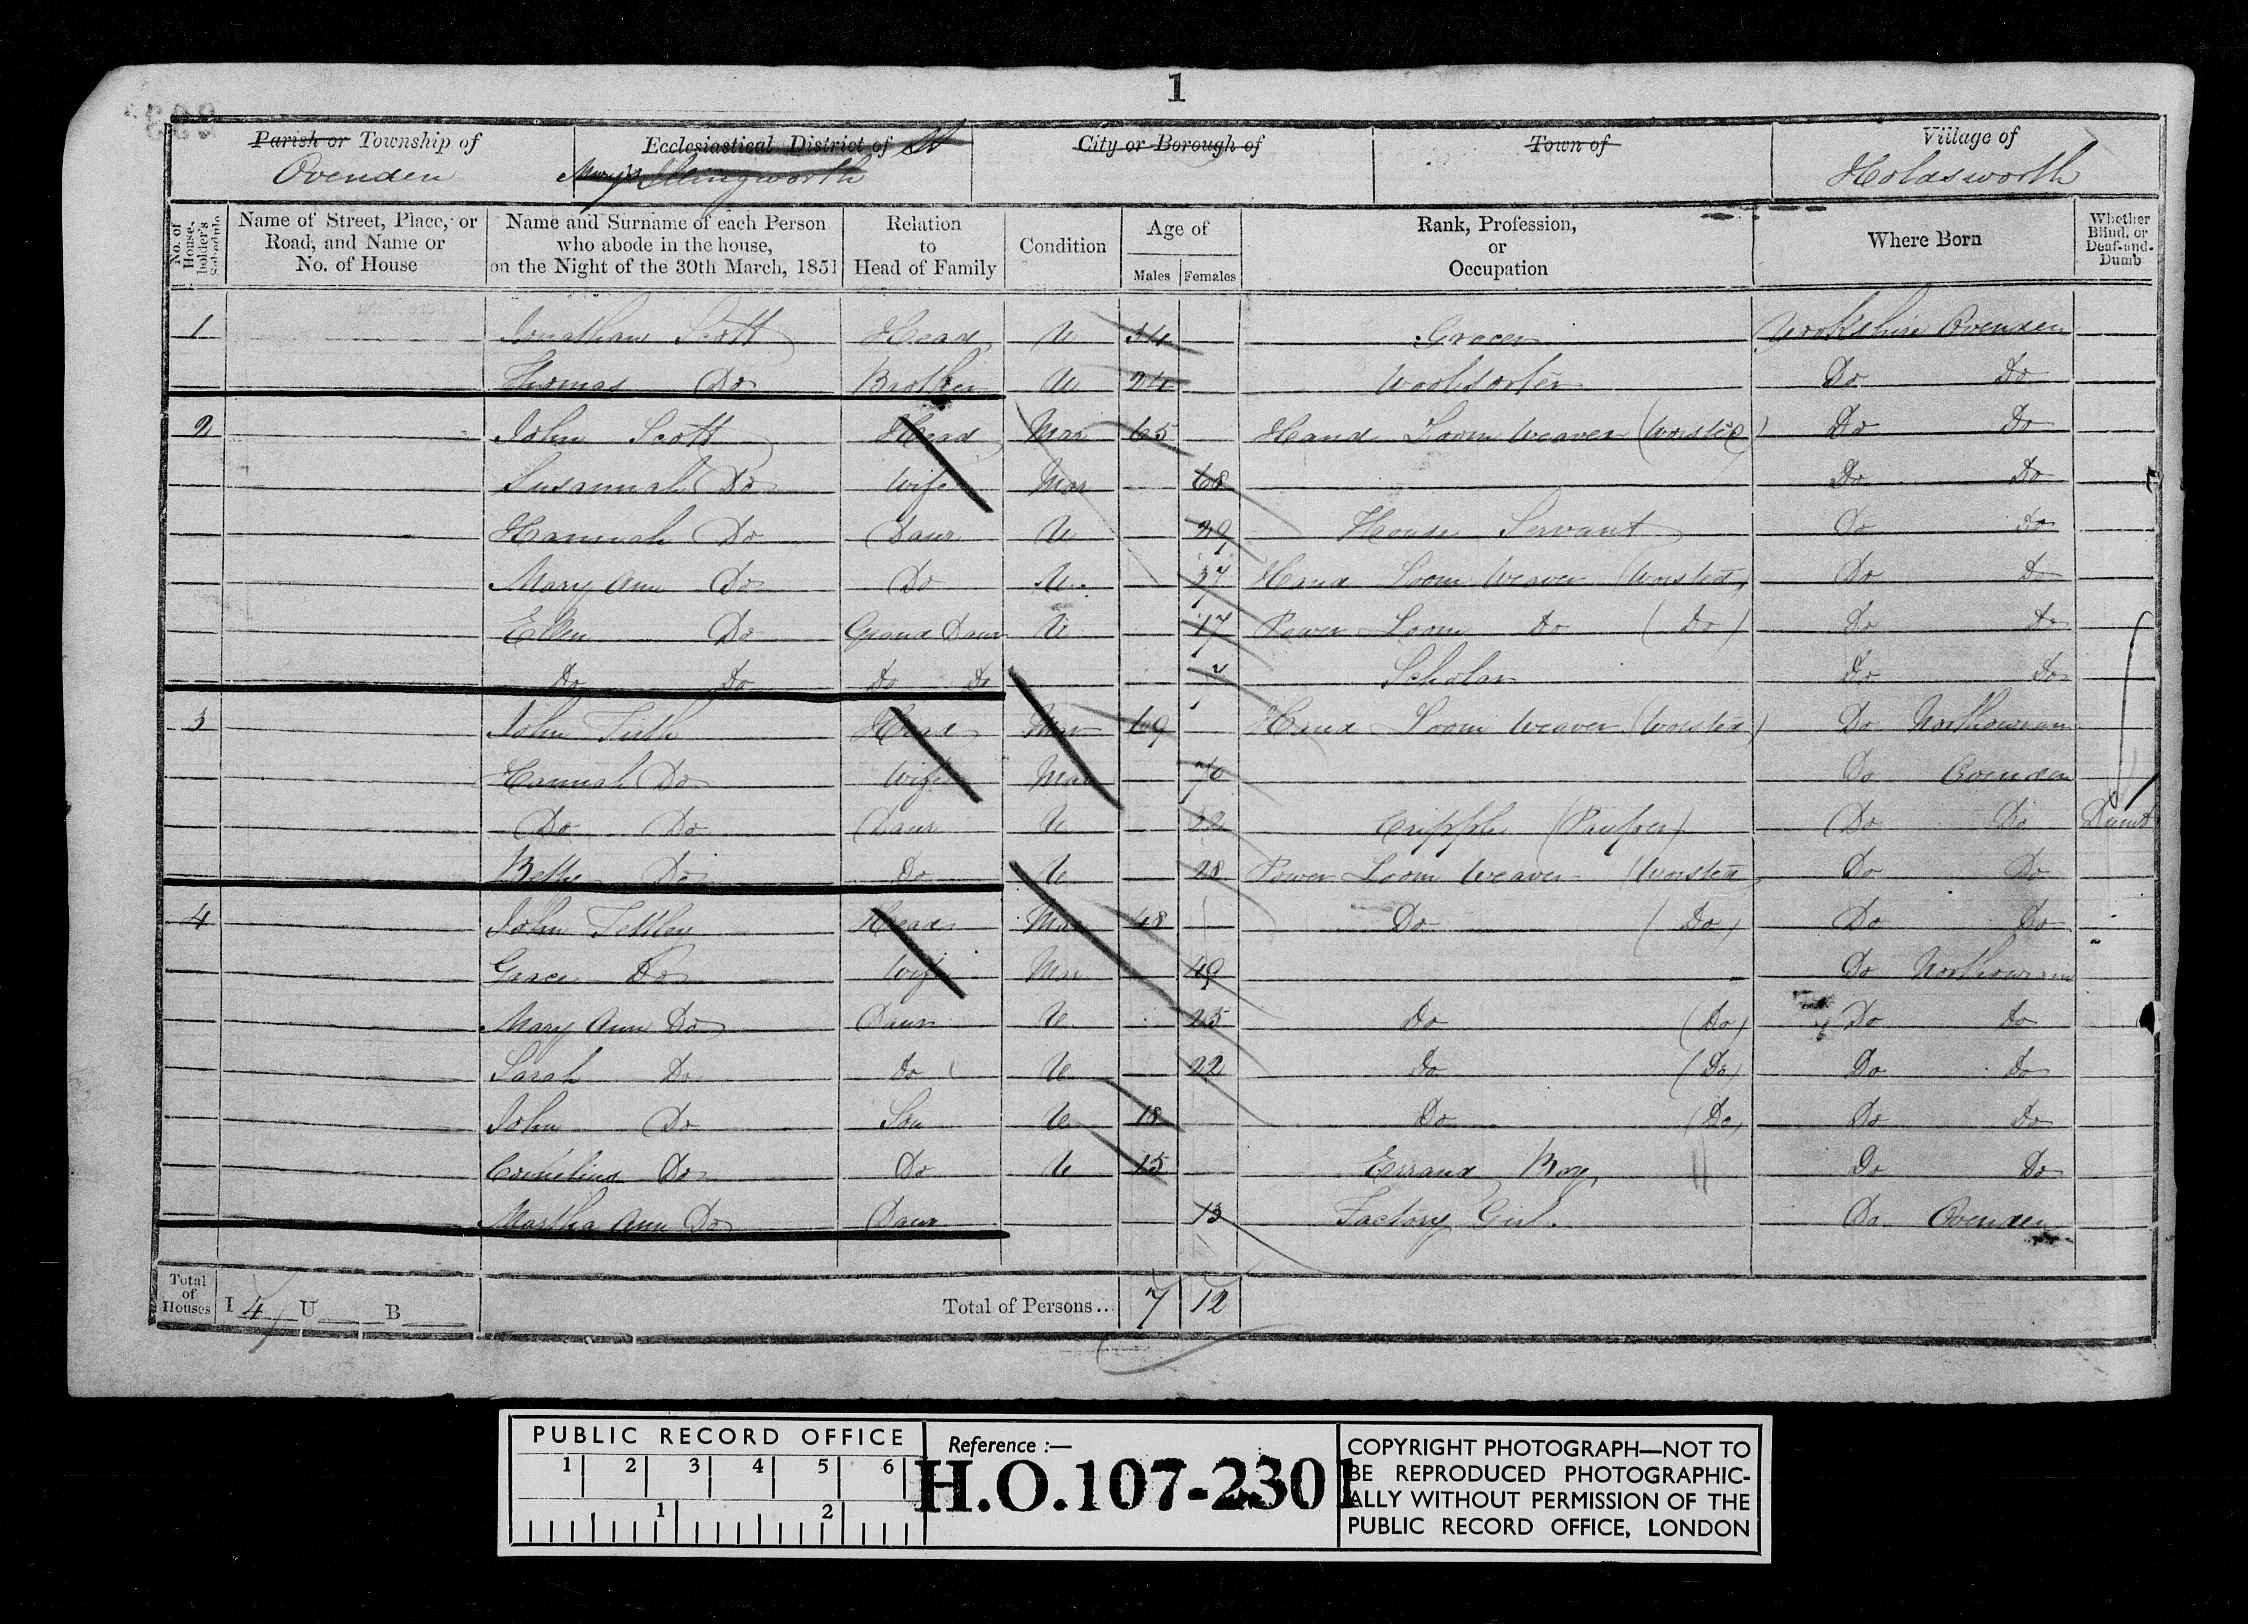 1
Parish or Township of Ecclesiastical District of St City or Borough of Town of Village of
Ovenden Mary's Illingworth Holdsworth
No. of House-holder's Schedule Name of Street, Place, or Road, and Name or No. of House Name and Surname of each Person who abode in the house, on the Night of the 30th March, 1851 Relation to Head of Family Condition Age of Males Females Rank, Profession, or Occupation Where Born Whether Blind, or Deaf-and-Dumb
1 Jonathan Scott Head U 34 Grocer Yorkshire Ovenden
Thomas Do Brother U 24 Woolsorter Do Do
2 John Scott Head Mar 65 Hand Loom Weaver (Worsted) Do Do
Susannah Do Wife Mar 68 Do Do
Hannah Do Daur U 29 House Servant Do Do
Mary Ann Do Do U 37 Hand Loom Weaver (Worsted) Do Do
Ellen Do Grand Daur U 17 Power Loom Do (Do) Do Do
Do Do Do Do 7 Scholar Do Do
3 John Firth Head Mar 69 Hand Loom Weaver (Worsted) Do Northowram
Hannah Do Wife Mar 70 Do Ovenden
Do Do Daur U Cripple (Pauper) Do Do Dumb
Betty Do Do U 28 Power Loom Weaver (Worsted) Do Do
4 John Tetley Head Mar 48 Do (Do) Do Do
Grace Do Wife Mar 49 Do Northowram
Mary Ann Do Daur U 25 Do (Do) Do Do
Sarah Do Do U 22 Do (Do) Do Do
John Do Son U 18 Do (Do) Do Do
Cornelius Do Do U 15 Errand Boy Do Do
Martha Ann Do Daur 13 Factory Girl. Do Ovenden
Total of Houses I 4 U B Total of Persons... 7 12
PUBLIC RECORD OFFICE
1 2 3 4 5 6
1 2
Reference :—
H.O.107-2301
COPYRIGHT PHOTOGRAPH—NOT TO
BE REPRODUCED PHOTOGRAPHIC-
ALLY WITHOUT PERMISSION OF THE
PUBLIC RECORD OFFICE, LONDON